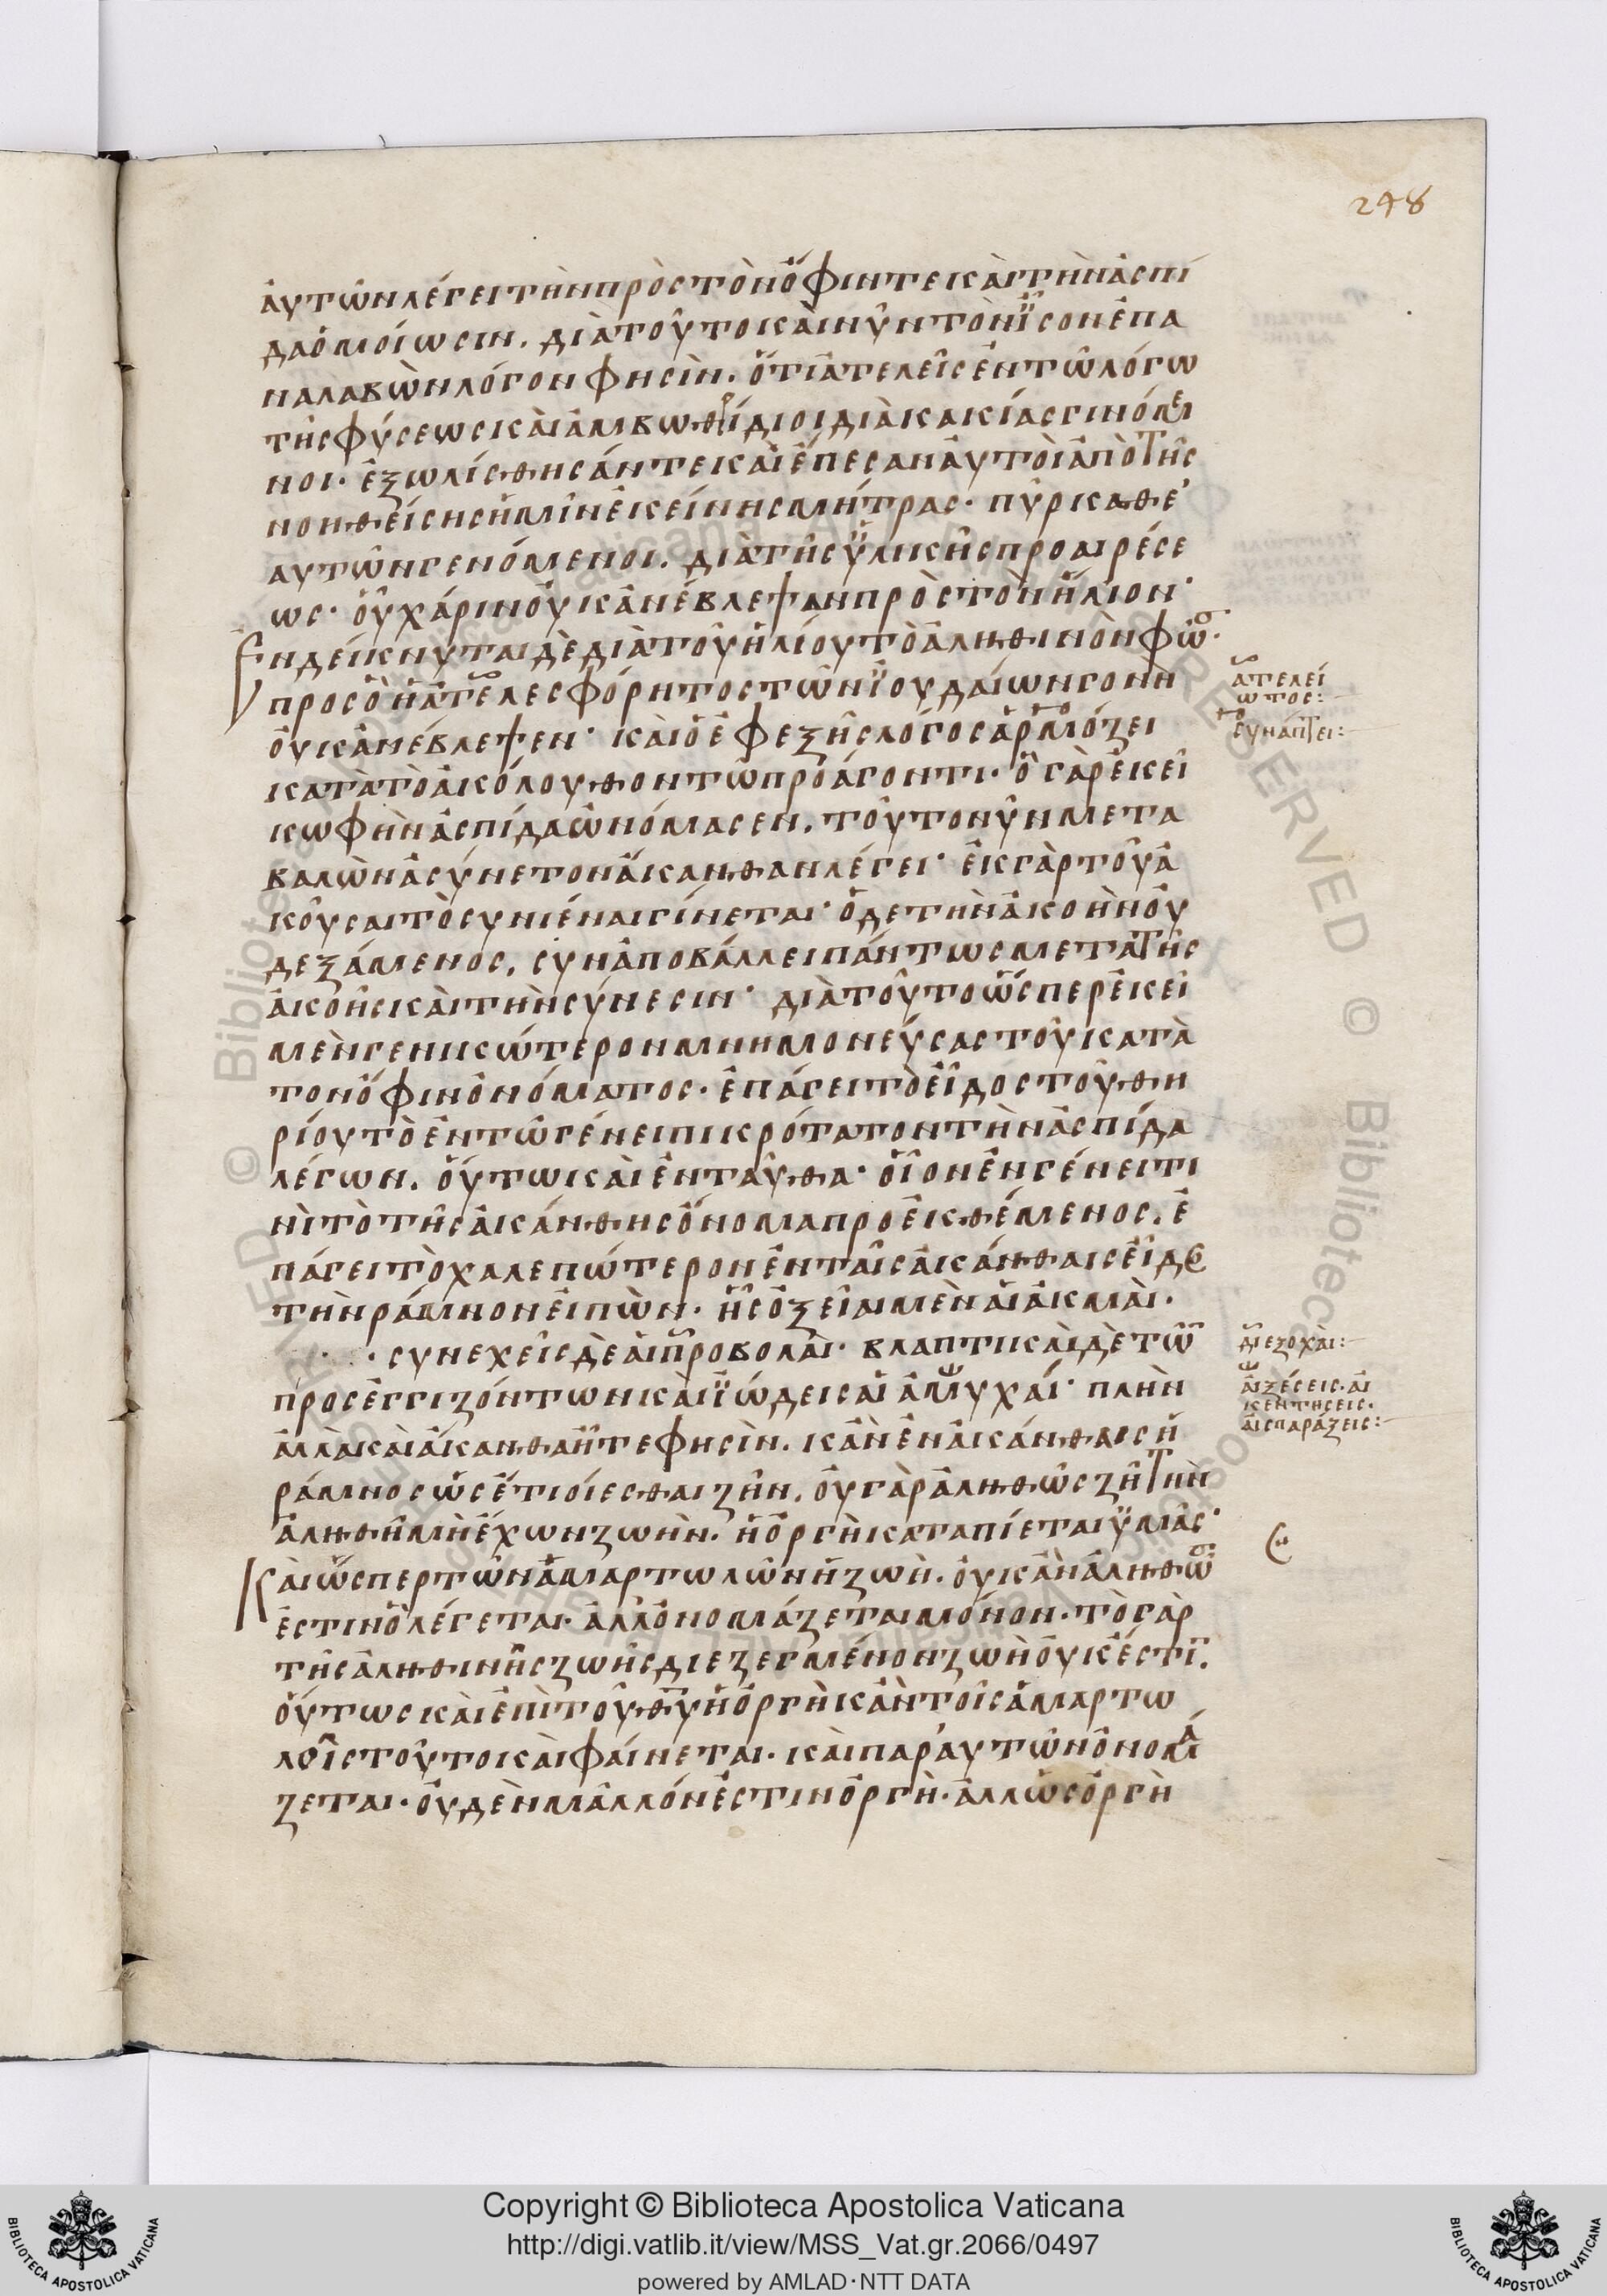 248
ἀυτῶν λέγει τὴν πρὸς τὸν ὄφιν τε κὰι τὴν ἀσπί
δα ὁμοίωσιν. διὰ τοῦτο κὰι νῦν τὸν ἴ̈σον ἐπα
ναλαβὼν λόγον φησὶν. ὅτι ἀτελεῖς ἐν τῶ λόγω
τῆς φύσεως κὰι ἀμβωθρίδιοι διὰ κακίας γινόμε
νοι. ἐξωλίσθησάν τε κὰι ἔπεσαν ἀυτὸι ἀπὸ τῆς
νοηθείσης ἡμῖν ἐκείνης μήτρας. πῦρ καθε’
αυτῶν γενόμενοι. διὰ τῆς ὑλικῆς προαιρέσε
ως. οὗ χάριν οὐκ ἀνέβλεψαν πρὸς τὸν ἥλιον·
Ἐνδείκνυται δὲ διὰ τοῦ ἡλίου τὸ ἀληθινὸν φῶσ.
προσ ὃ ἡ ἀτελεσφόρητος τῶν ἰουδαίων γονὴ
οὐκ ἀνέβλεψεν· κὰι ὁ ἐφεξῆς λόγος ἁρμόζει
κατὰ τὸ ἀκόλουθον τῶ προάγοντι. ὃ γὰρ ἐκεῖ
κωφὴν ἀσπίδα ὠνόμασεν. τοῦτο νῦν μετα
βαλὼν ἀσύνετον ἄκανθαν λέγει· ἐκ γὰρ τοῦ ἀ
κοῦσαι τὸ συνιέναι γίνεται· ὁ δε τὴν ἀκοὴν οὐ
δεξάμενος. συναποβάλλει πάντως μετὰ τῆς
ἀκοῆς κὰι τὴν σύνεσιν· διὰ τοῦτο ὥσπερ ἐκεῖ
μὲν γενικώτερον μνημονεύσας τοῦ κατὰ
τον ὄφιν ὀνόματος. ἐπάγει τὸ εἶδος τοῦ θη
ρίου τὸ ἐν τῶ γένει πικρότατον τὴν ἀσπίδα
λέγων. οὕτω κὰι ἐνταῦθα· οἷον ἐν γένει τι
νὶ τὸ τῆς ἀκάνθης ὄνομα προεκθέμενος. ἐ
πάγει τὸ χαλεπώτερον ἐν ταῖς ἀκάνθαις εἶδος
τὴν ράμνον εἰπὼν. ἧς ὀξεῖαι μὲν ἁι ἀκμὰι.
συνεχεῖς δὲ ἁι προβολὰι. βλαπτικὰι δὲ τῶν
προσεγγιζόντων κὰι ἰώδεις ἁι ἀμυχάι· πλὴν
ἀλλὰ κὰι ἄκανθα ἦτε φησὶν. κἂν ἐν ἀκάνθαις ἡ
ράμνος ὡς ἔτι οἴεσθαι ζῆν. οὐ γὰρ ἀληθῶς ζῆ τὴν
ἀληθῆ μὴ ἔχων ζωὴν. ἡ ὀργὴ καταπίεται ὑμᾶς·
Κὰι ὥσπερ τῶν ἁμαρτωλῶν ἡ ζωὴ. οὐκ ἂν ἀληθῶσ
ἐστὶν ὃ λέγεται. ἀλλ’ ὀνομάζεται μόνον. τὸ γὰρ
τῆς ἀληθινῆς ζωῆς διεζεγμένον ζωὴ οὐκ ἔστιν.
οὕτως κὰι ἐπὶ τοῦ θυ ἡ ὀργὴ κἂν τοῖς ἁμαρτω
λοῖς τοῦτο κὰι φαίνεται. κὰι παρ’ ἀυτῶν ὀνομά
ζεται. οὐδὲν μᾶλλόν ἐστιν ὀργὴ. ἀλλ’ ὡς ὀργὴ
ἀτελεί
ωτος:
συνάπτει:
ἁι ἐξοχὰι:
ἁι ξέσεις. ἁι
κεντησεις.
ἁι σπαράξεις:
Copyright © Biblioteca Apostolica Vaticana
http://digi.vatlib.it/view/MSS_Vat.gr.2066/0497
powered by AMLAD·NTT DATA
BIBLIOTECA APOSTOLICA VATICANA
BIBLIOTECA APOSTOLICA VATICANA